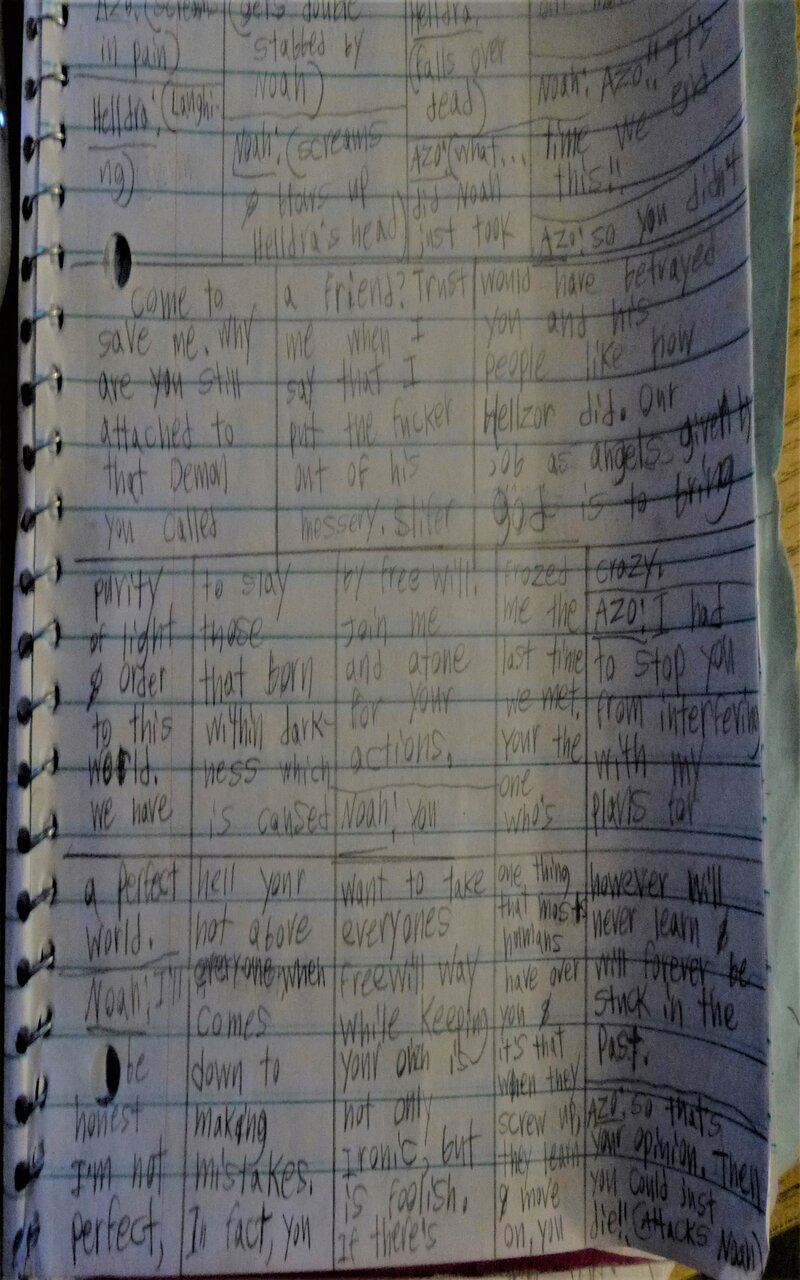 in pain)
Helldra: (Laughi-
ng)
(gets double
stabbed by
Noah)
Noah: (screams
& blows up
Helldra's head)
Helldra:
(falls over
dead)
Azo: (what...
did Noah
just took
Noah: Azo!! It's
time we end
this!!
Azo: so you didn't
come to
save me. why
are you still
attached to
that Demon
you called
a friend? Trust
me when I
say that I
put the fucker
out of his
messery. Slifer
would have betrayed
you and his
people like how
Hellzor did. Our
job as angels given by
god is to bring
purity
of light
& order
to this
world.
we have
to slay
those
that born
within dark-
ness which
is caused
by free will.
Join me
and atone
for your
actions.
Noah: You
frozed
me the
last time
we met.
your the
one
who's
crazy.
Azo: I had
to stop you
from interfering
with my
plans for
a perfect
world.
Noah: I'll
be
honest
I'm not
perfect,
hell your
not above
everyone, when
comes
down to
making
mistakes.
In fact, you
want to take
everyones
freewill way
while keeping
your own is
not only
Ironic, but
is foolish.
If there's
one thing
that most
humans
have over
you &
it's that
when they
screw up,
they learn
& move
on, you
however will
never learn &
will forever be
stuck in the
past.
Azo: so that's
your opinion. Then
you could just
die!! (Attacks Noah)